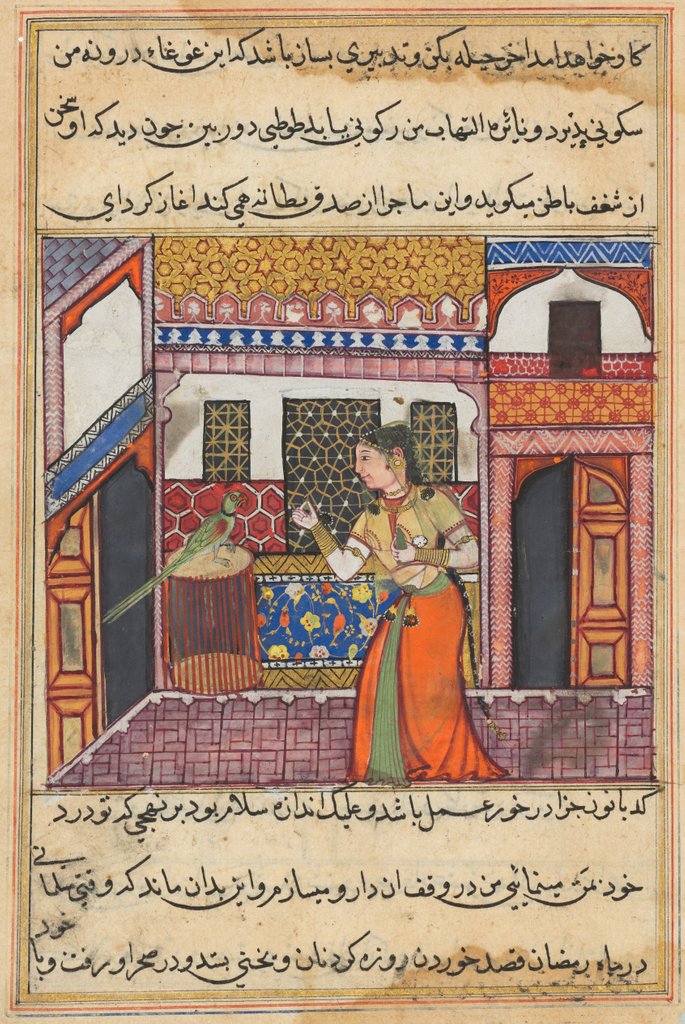 کار خواهد امد اخر حیله بکن و تدبیری بساز باشد که این غوغاء درونه من
سکونی پذیرد و نایرهٔ التهاب من رکونی یابد طوطی دوربین چون دید که او سخن
از شغف باطن میکوید و این ماجرا از صدق بطانه همی کند اغاز کرد ای
کدبانو جزا درخور عمل باشد و علیک اندازه سلام بود بر نهجی که تو درد
خود بمن مینمائی من در وقف ان دارو میسازم و این بدان ماند که وقتی سلمانی
در ماه رمضان قصد خوردن روزه کرد نان و پختی بستد و در صحرا و رفت و با
خود